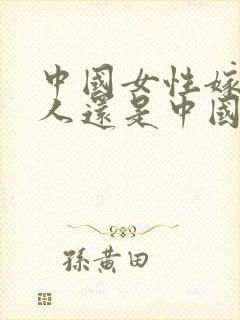 中國女性嫁
人還是中國
孫黃田